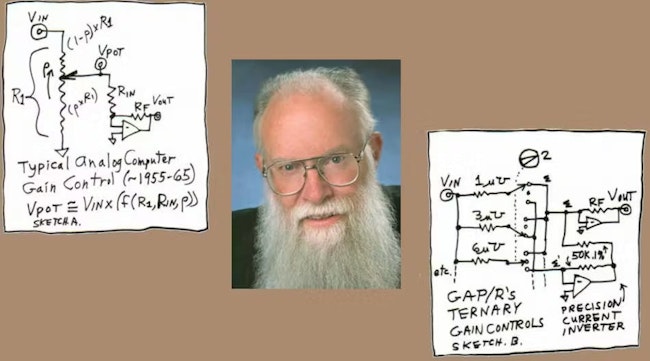 VIN
(1-p)xR1
VPOT
p
R1
RIN
(pxR1)
RF
VOUT
-
+
Typical Analog Computer
Gain Control (~1955-65)
VPOT ≅ VINX(f(R1,RIN,p))
SKETCH A.
2
VIN
1μ℧
Σ
RF
VOUT
3μ℧
6μ℧
Σ'
50K.1%
etc.
GAP/R's
TERNARY
GAIN CONTROLS
SKETCH. B.
PRECISION
CURRENT
INVERTER